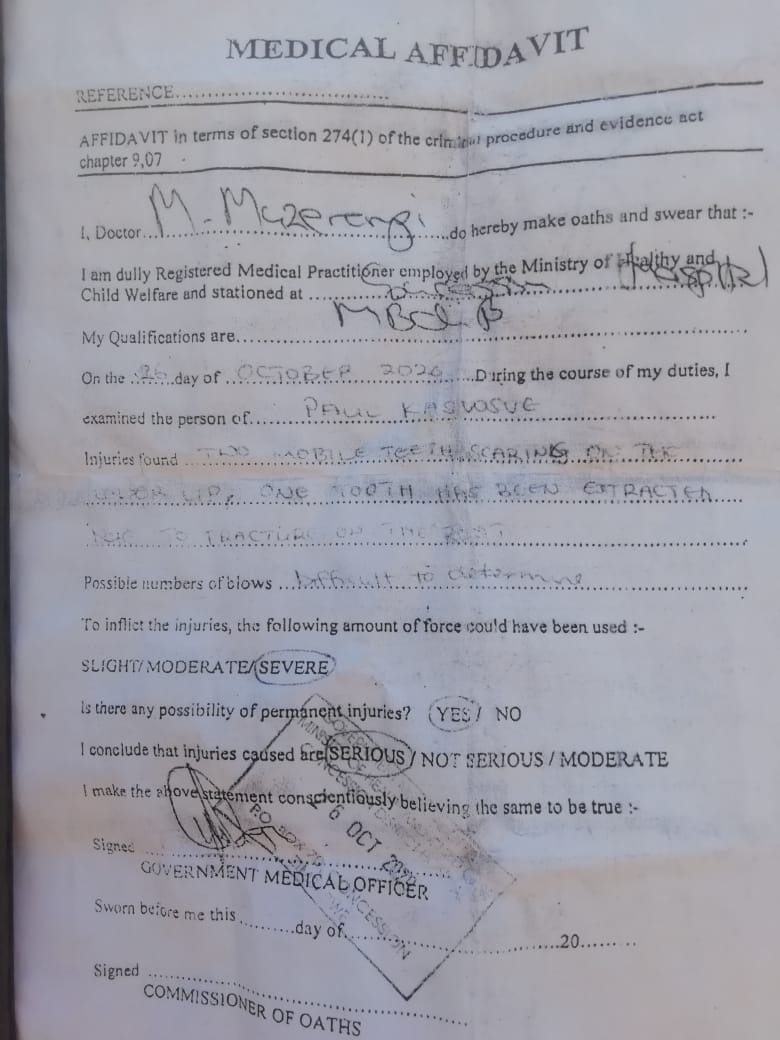 MEDICAL AFFIDAVIT
REFERENCE..............................
AFFIDAVIT in terms of section 274(1) of the criminal procedure and evidence act
chapter 9,07
I, Doctor...M. Mazerengi...do hereby make oaths and swear that :-
I am dully Registered Medical Practitioner employed by the Ministry of Healthy and
Child Welfare and stationed at ...Hospital
My Qualifications are...
On the ..26..day of ..OCTOBER 2020....During the course of my duties, I
examined the person of...PAUL KASVOSVE
Injuries found ..TWO MOBILE TEETH SCARING ON THE
LIP, ONE TOOTH HAS BEEN EXTRACTED
TO FRACTURE OF THE ROOT
Possible numbers of blows ...Difficult to determine
To inflict the injuries, the following amount of force could have been used :-
SLIGHT/MODERATE/SEVERE
Is there any possibility of permanent injuries? YES / NO
I conclude that injuries caused are SERIOUS / NOT SERIOUS / MODERATE
I make the above statement conscientiously believing the same to be true :-
Signed ..............................
GOVERNMENT MEDICAL OFFICER
6 OCT
P.O. BOX
CONCESSION
Sworn before me this ..........day of..............................20.........
Signed ..............................
COMMISSIONER OF OATHS